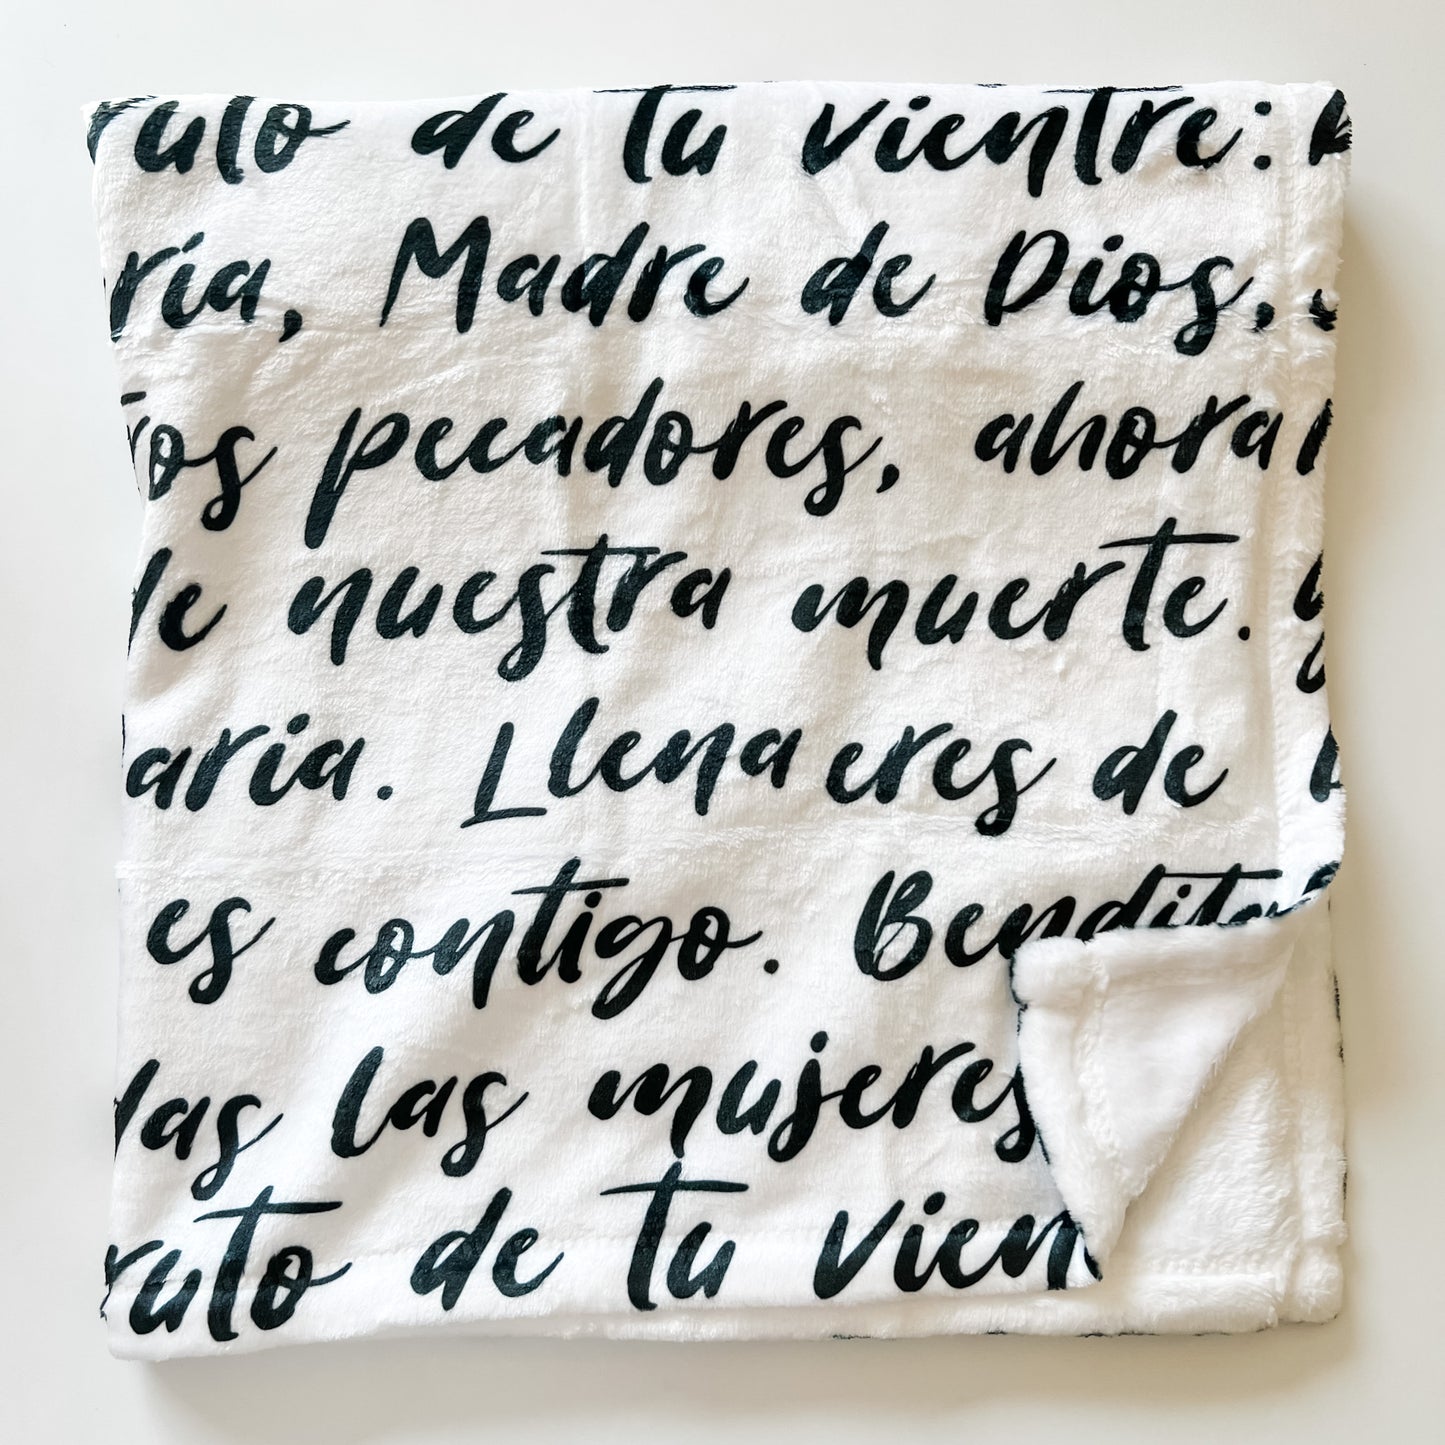 ruto de tu vientre:
ría, Madre de Dios,
ros pecadores, ahora
de nuestra muerte.
aria. Llena eres de
es contigo. Bendita
das las mujeres
ruto de tu vien